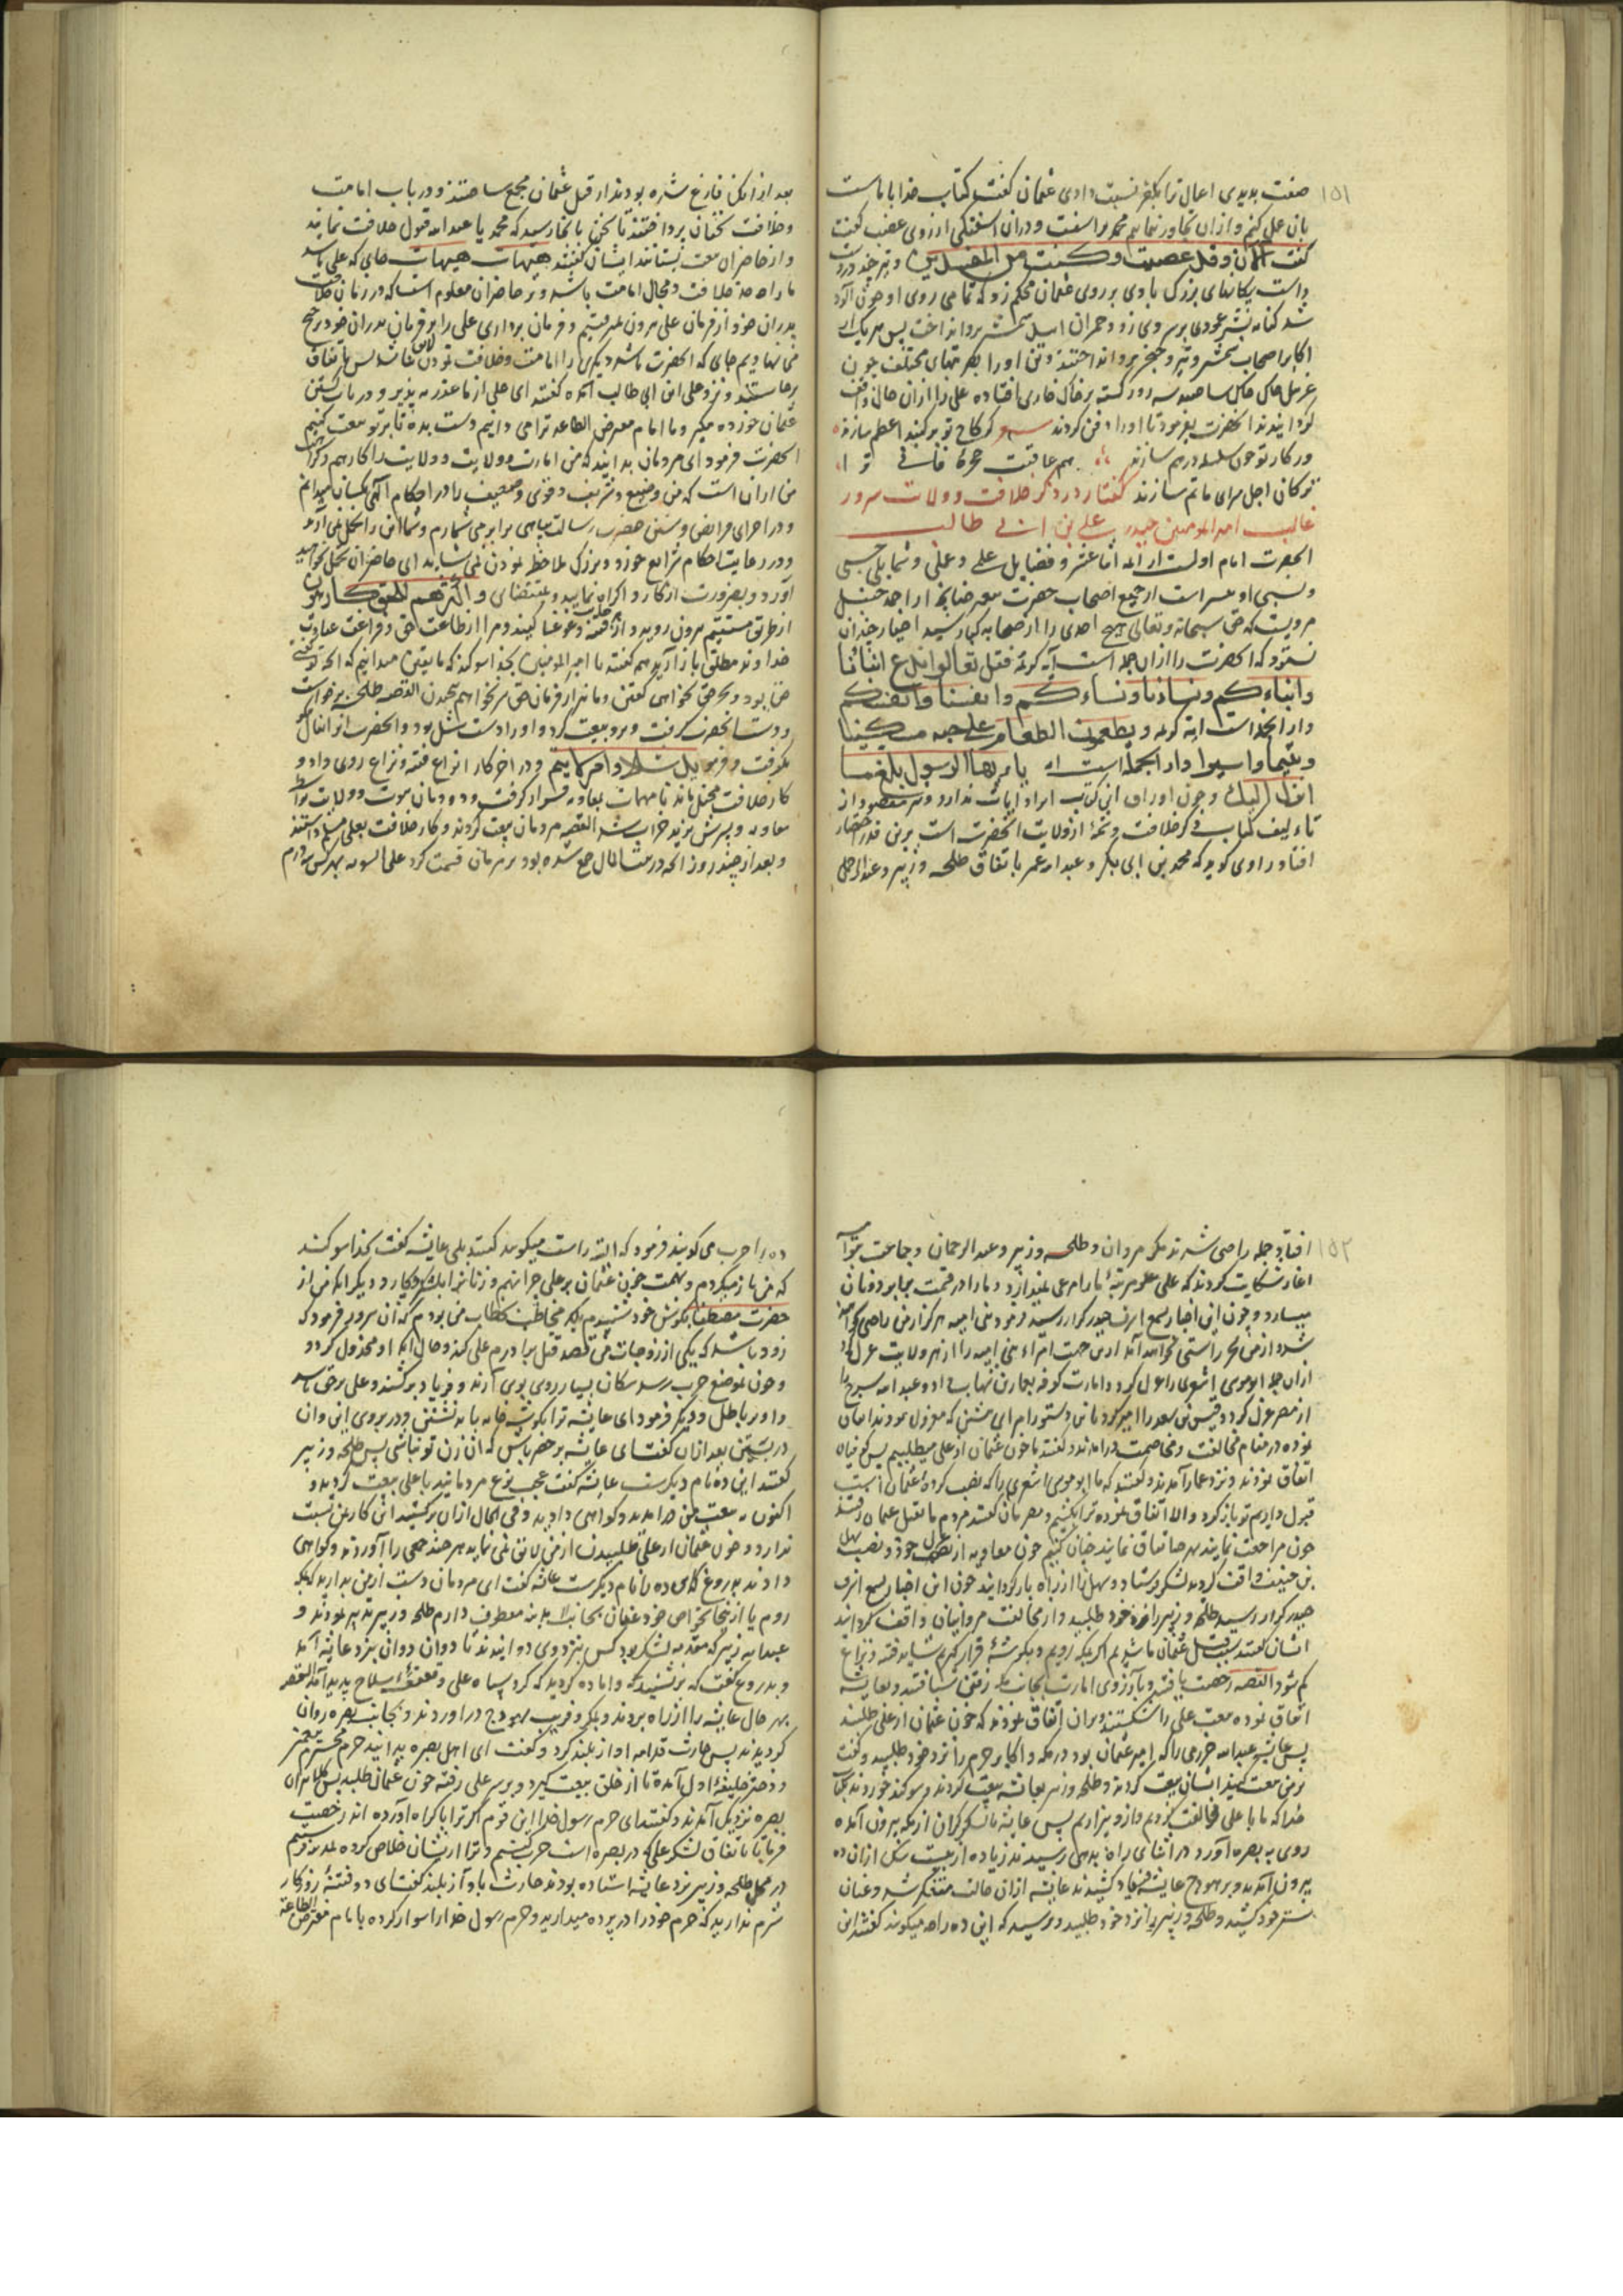 ۱۵۱
صفت بدیدی اعمال ترا بکفر نسبت دادی عثمان کفت کتاب خدا با ماست
بان عمل کنیم و از ان تجاوز ننمایم محمد بر اشفت و دران اشفتکی از روی غضب کفت
کفت الآن وقد عصیت وکنت من المفسدین و تیر چند در دست
داشت بیکبارهای بزرک بادی بر روی عثمان محکم زد که تمامی روی او خون آلود
شد کنانه بن بشر عمودی بر سر وی زد و حمران اسل شمشیر بر و انداخت پس هر یک از
اکابر اصحاب شمشیر و تیر و خنجر بر و انداختند و تن او را بضربتهای مختلف چون
کردانیدند انحضرت بفرمود تا او را دفن کردند
در کار تو چون سلسله درهم سازند هم عاقبت حجره فانی ترا
ترکان اجل سرای ماتم سازند کفتار در ذکر خلافت و ولایت سرور
غالب امیر المومنین حیدر علی بن ابی طالب
انحضرت امام اولست از ائمه اثنا عشر و فضایل علمی و عملی و شمایل حسبی
و نسبی او بیشتر است از جمیع اصحاب حضرت پیغمبر چنانچه از احمد حنبل
مرویست که حق سبحانه و تعالی هیچ احدی را از صحابه کبار سید اخیار چندان
نستود که انحضرت را از ان جمله است آیه کریمه فقل تعالوا ندع ابنائنا
وابناءکم ونساءنا ونساءکم وانفسنا وانفسکم
و از انجمله است آیه کریمه ویطعمون الطعام علی حبه مسکینا
ویتیما واسیرا و از انجمله است یا ایها الرسول بلغ ما
انزل الیک و چون اوراق این کتاب ایراد ایات ندارد و مقصود از
تالیف کتاب ذکر خلافت و تتمه از ولایت انحضرت است برین قدر اختصار
افتاد راوی کوید که محمد بن ابی بکر و عبد الله عمر باتفاق طلحه و زبیر و عبد الرحمن
بعد از انکه فارغ شده بودند از قتل عثمان مجمع ساختند و در باب امامت
و خلافت سخنان پرداختند تا سخن بانجا رسید که محمد یا عبد الله قبول خلافت نمایند
و از حاضران بیعت بستانند ایشان کفتند هیهات هیهات جایی که علی باشد
ما را چه حد خلافت و مجال امامت باشد و بر حاضران معلوم است که در زمان خلافت
پدران خود از فرمان علی بیرون نمیرفتیم و فرمان برداری علی را بر فرمان پدران خود ترجیح
می نهادیم جایی که انحضرت باشد دیکری را امامت و خلافت نمودن لایق نباشد پس باتفاق
برخاستند و نزد علی ابن ابی طالب آمده کفتند ای علی از ما عذر بپذیر و در باب کشتن
عثمان خورده مکیر و ما امام مفترض الطاعه ترا می دانیم دست بده تا بر تو بیعت کنیم
انحضرت فرمود ای مردمان بدانید که من امارت و ولایت را کارهم
من از ان است که من وضیع و شریف و قوی و ضعیف را در احکام الهی یکسان میدانم
و در اجرای فرایض و سنن حضرت رسالت پناهی برابر می شمارم و شما این را تحمل نمی آرید
و در رعایت احکام شرایع خورد و بزرک ملاحظه نمودن نمی شاید ای حاضران تحمل نخواهید
آورد و بضرورت انکار و اکراه نمایید و بمقتضای واکثرهم للحق کارهون
از طریق مستقیم بیرون روید
خداوند مطلق باز آرید همه کفتند یا امیر المومنین بخدا سوکند که ما یقین میدانیم که انچه تو کفتی
حق بود و بجز حق نخواهی کفتن و ما نیز از فرمان حق سر نخواهیم پیچیدن القصه طلحه برخاست
و دست انحضرت کرفت و برو بیعت کرد و او را دست شل بود و انحضرت از ان فال
بکرفت و فرمود ید شلاء وامر لایتم و در اخر کار انواع فتنه و نزاع روی داد و
معاویه و پسرش یزید خراب شد القصه مردمان بیعت کردند و کار خلافت بعلی مسلم داشتند
و بعد از چند روز انچه در بیت المال جمع شده بود بر مردمان قسمت کرد علی السویه بهر کس سه درم
۱۵۲
افتاد و جمله راضی شدند مکر مروان و طلحه و زبیر و عبد الرحمان و جماعت
اغاز شکایت کردند که علی علو مرتبه ما را مرعی نمیدارد و ما را در قسمت برابر دونان
میسازد و چون این اخبار بسمع اشرف حیدر کرار رسید فرمود بنی امیه هرکز از من راضی نخواهند
شد و از من بجز راستی نخواهد آمد
ازان جمله ابو موسی اشعری را عزل کرد و امارت کوفه بعمار بن شهاب داد و عبد الله سرح را
از مصر عزل کرد و قیس بن سعد را امیر کردانید
بوده در مقام مخالفت و مخاصمت درامدند و کفتند ما خون عثمان از علی میطلبیم پس کوفیان
اتفاق نمودند و نزد عمار آمدند و کفتند که ما ابو موسی اشعری را که نصب کرده عثمان است
قبول داریم تو باز کرد و الا اتفاق نموده ترا بکشیم
بن حنیف واقف کردید لشکر فرستاد و سهل را از راه باز کردانید چون این اخبار بسمع اشرف
حیدر کرار رسید طلحه و زبیر را نزد خود طلبید و از مخالفت مروانیان واقف کردانید
ایشان کفتند بسبب قتل عثمان
کم شود القصه رخصت یافتند و بآرزوی امارت بجانب مکه رفتن شتافتند و بعایشه
اتفاق نموده بیعت علی را شکستند و بران اتفاق نمودند که خون عثمان از علی طلبند
پس عایشه عبد الله حضرمی را که امیر عثمان بود در مکه و اکابر حرم را نزد خود طلبید و کفت
بر من بیعت کنید ایشان بیعت کردند و طلحه و زبیر بعایشه بیعت کردند و سوکند خوردند بکتاب
خدا که ما با علی مخالفت کردیم و ازو بیزاریم پس عایشه با لشکر کران از مکه بیرون آمده
روی به بصره آورد در اثنای راه بدهی رسیدند زیاده از بیست سک ازان ده
بیرون آمدند و بر هودج عایشه فریاد کشیدند عایشه ازان حالت متفکر شد و عنان
شتر خود کشید و طلحه و زبیر را نزد خود طلبید و پرسید که این ده را چه میکویند کفتند این
ده را حرب می کویند فرمود که البته راست میکویید کفتند بلی عایشه کفت بخدا سوکند
که من باز میکردم
حضرت مصطفی بکوش خود شنیدم بلکه مخاطب بخطاب من بودم که آن سرور فرمود که
زود باشد که یکی از زوجات من قصد قتل برادرم علی کند و حال انکه او مخذول کردد
و چون بموضع حرب رسد سکان بسیار روی بوی آرند و فریاد برکشند و علی بر حق باشد
و او بر باطل و دیکر فرمود ای عایشه ترا بکوشه خانه باید نشستن و در بروی این و ان
در بستن بعد ازان کفت ای عایشه بر حذر باش که ان زن تو نباشی پس طلحه و زبیر
کفتند این ده نام دیکرست عایشه کفت عجب نوع مردمانید با علی بیعت کردید و
اکنون به بیعت من درامدید و کواهی دادید و فی الحال ازان برکشتید این کار بمن نسبت
ندارد و خون عثمان از علی طلبیدن از من لایق نمی نماید هر چند جمعی را آوردند و کواهی
دادند بدروغ که این ده را نام دیکرست عایشه کفت ای مردمان دست از من بدارید که بمکه
و بدروغ کفت که برنشینید و آماده کردید که کرد سپاه علی و قعقعه سلاح پدید آمد القصه
بهر حال عایشه را از راه بردند و بمکر و فریب بهودج دراوردند و بجانب بصره روان
کردیدند پس حارث قدامه اواز بلند کرد و کفت ای اهل بصره بدانید حرم محترم پیغمبر
و دختر خلیفه اول آمده تا از خلق بیعت کیرد و بر سر علی رفته خون عثمان طلبد پس کلانتران
بصره نزد پل آمدند و کفتند ای حرم رسول خدا این قوم اکر ترا باکراه آورده اند رخصت
فرمای تا باتفاق لشکر علی که در بصره است حرب کنیم و ترا از ایشان خلاص کرده بمدینه فرستیم
در محل طلحه و زبیر نزد عایشه استاده بودند حارث باواز بلند کفت ای دو فتنه روزکار
شرم ندارید که حرم خود را در پرده میدارید و حرم رسول خدا را سوار کرده با امام مفترض الطاعه